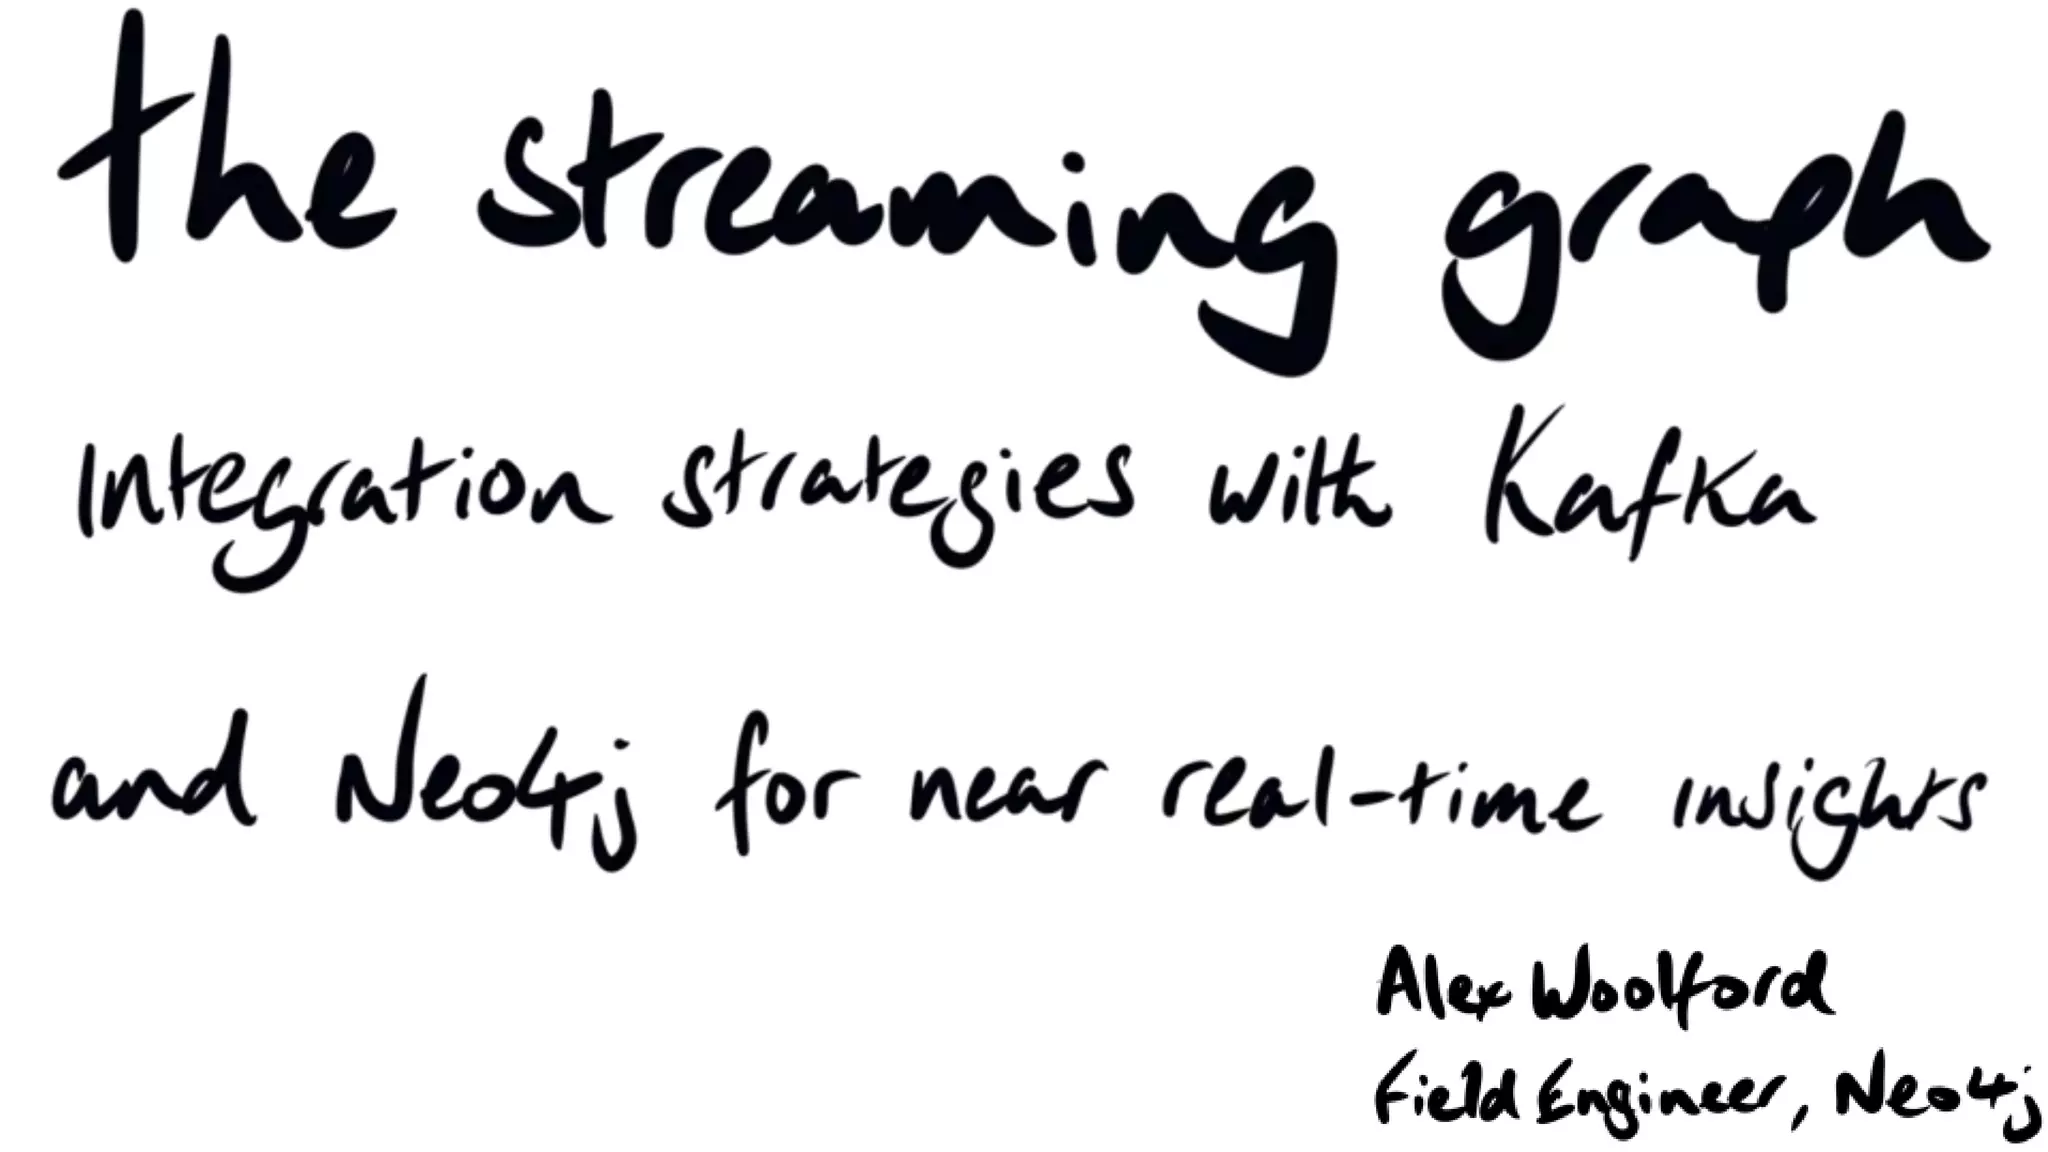 the streaming graph
Integration strategies with Kafka
and Neo4j for near real-time insights
Alex Woolford
Field Engineer, Neo4j